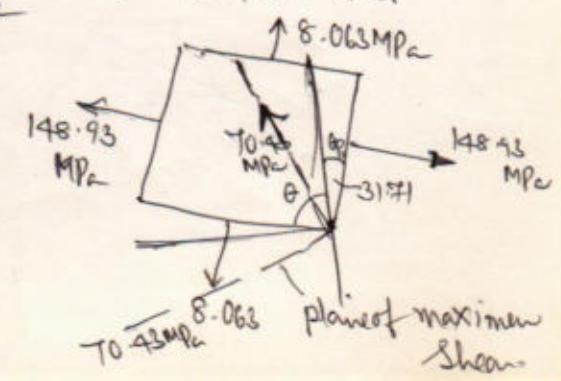 8.063MPa
148.93
MPa
148.93
MPa
70.43
MPa
θ
31.71
8.063
70.43MPa
plane of maximum
Shear